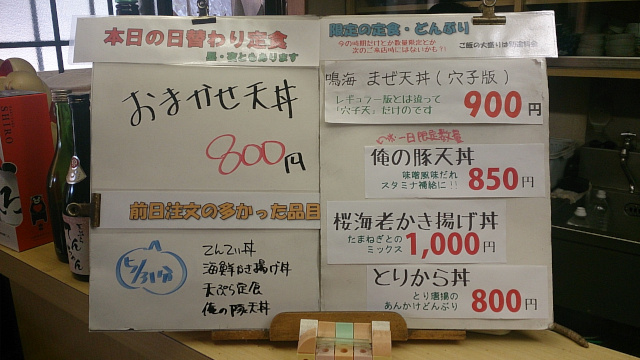 本日の日替わり定食
昼・夜ともあります
おまかせ天丼
800円
前日注文の多かった品目
てんてい丼
海鮮かき揚げ丼
天ぷら定食
俺の豚天丼
限定の定食・どんぶり
今の時期だけとか数量限定とか
次のご来店時にはないかも?!
ご飯の大盛りは別途料金
鳴海 まぜ天丼(穴子版)
レギュラー版とは違って
「穴子天」だけのです
900円
一日限定数量
俺の豚天丼
味噌風味だれ
スタミナ補給に!!
850円
桜海老かき揚げ丼
たまねぎとの
ミックス
1,000円
とりから丼
とり唐揚の
あんかけどんぶり
800円